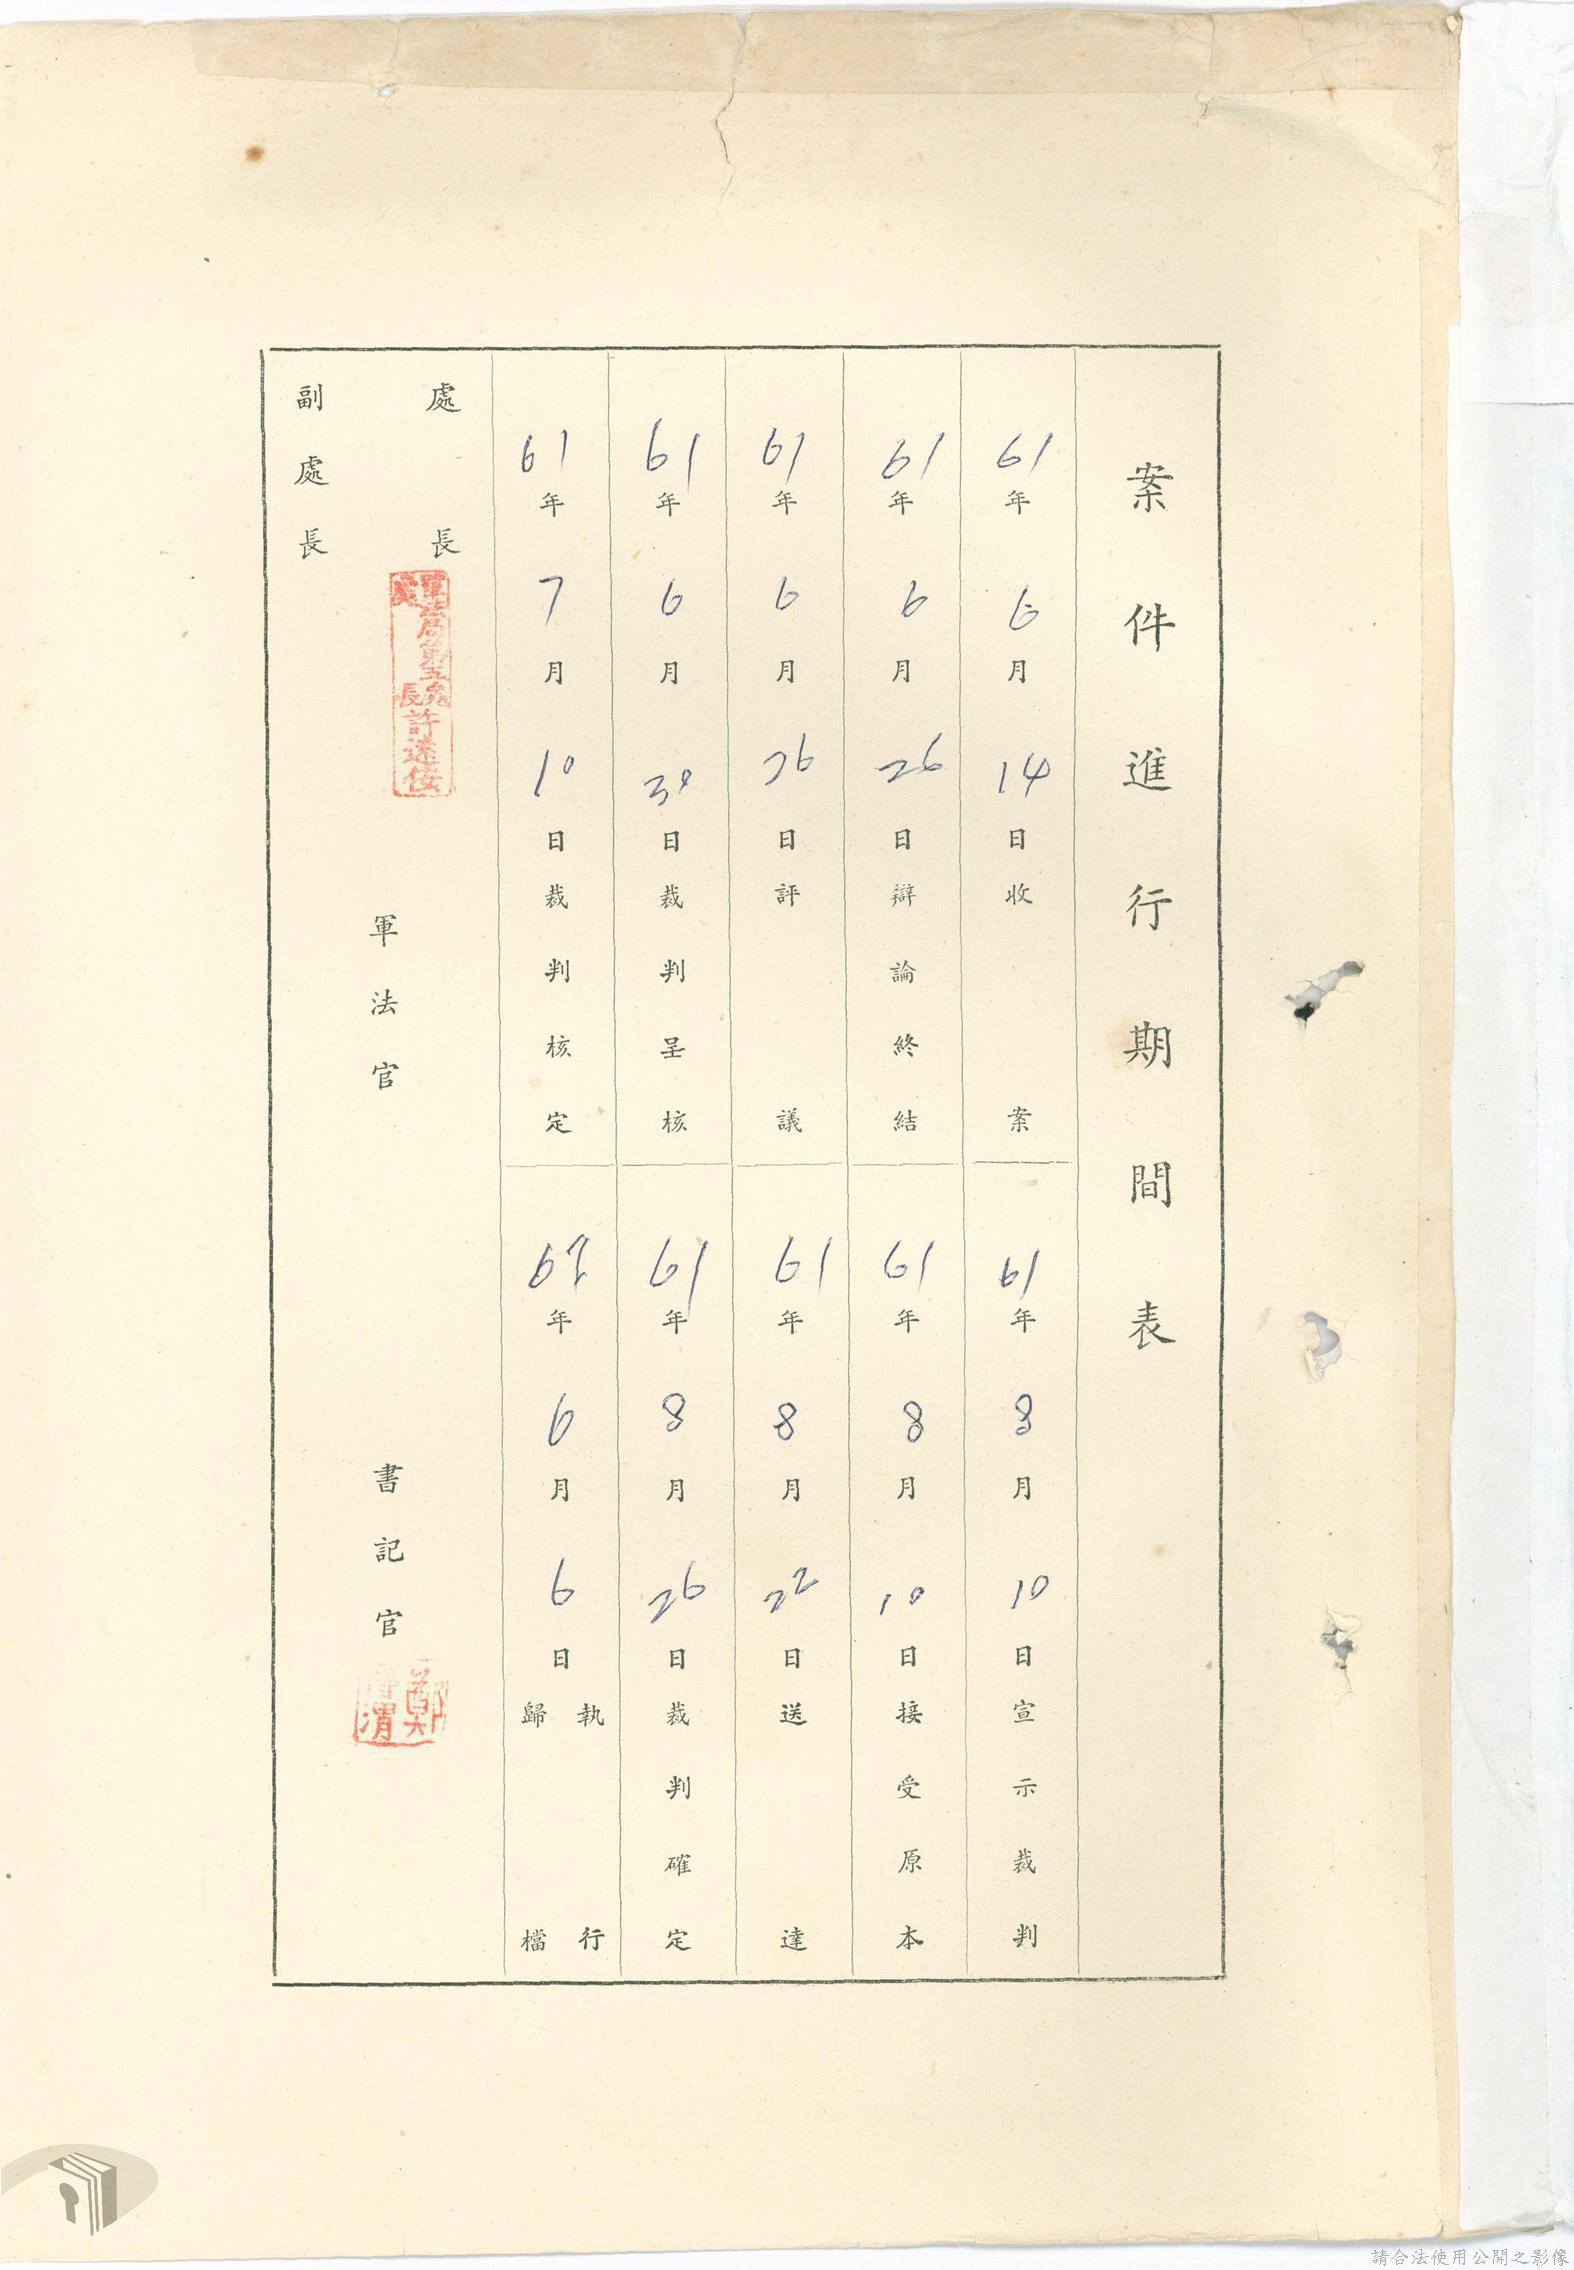 案件進行期間表
61年6月14日收案
61年8月10日宣示裁判
61年6月26日辯論終結
61年8月10日接受原本
61年6月26日評議
61年8月22日送達
61年6月30日裁判呈核
61年8月26日裁判確定
61年7月10日裁判核定
年6月6日執行歸檔
處長
軍法局第五處
處長許遠
副處長
軍法官
書記官
鄭
渭
請合法使用公開之影像